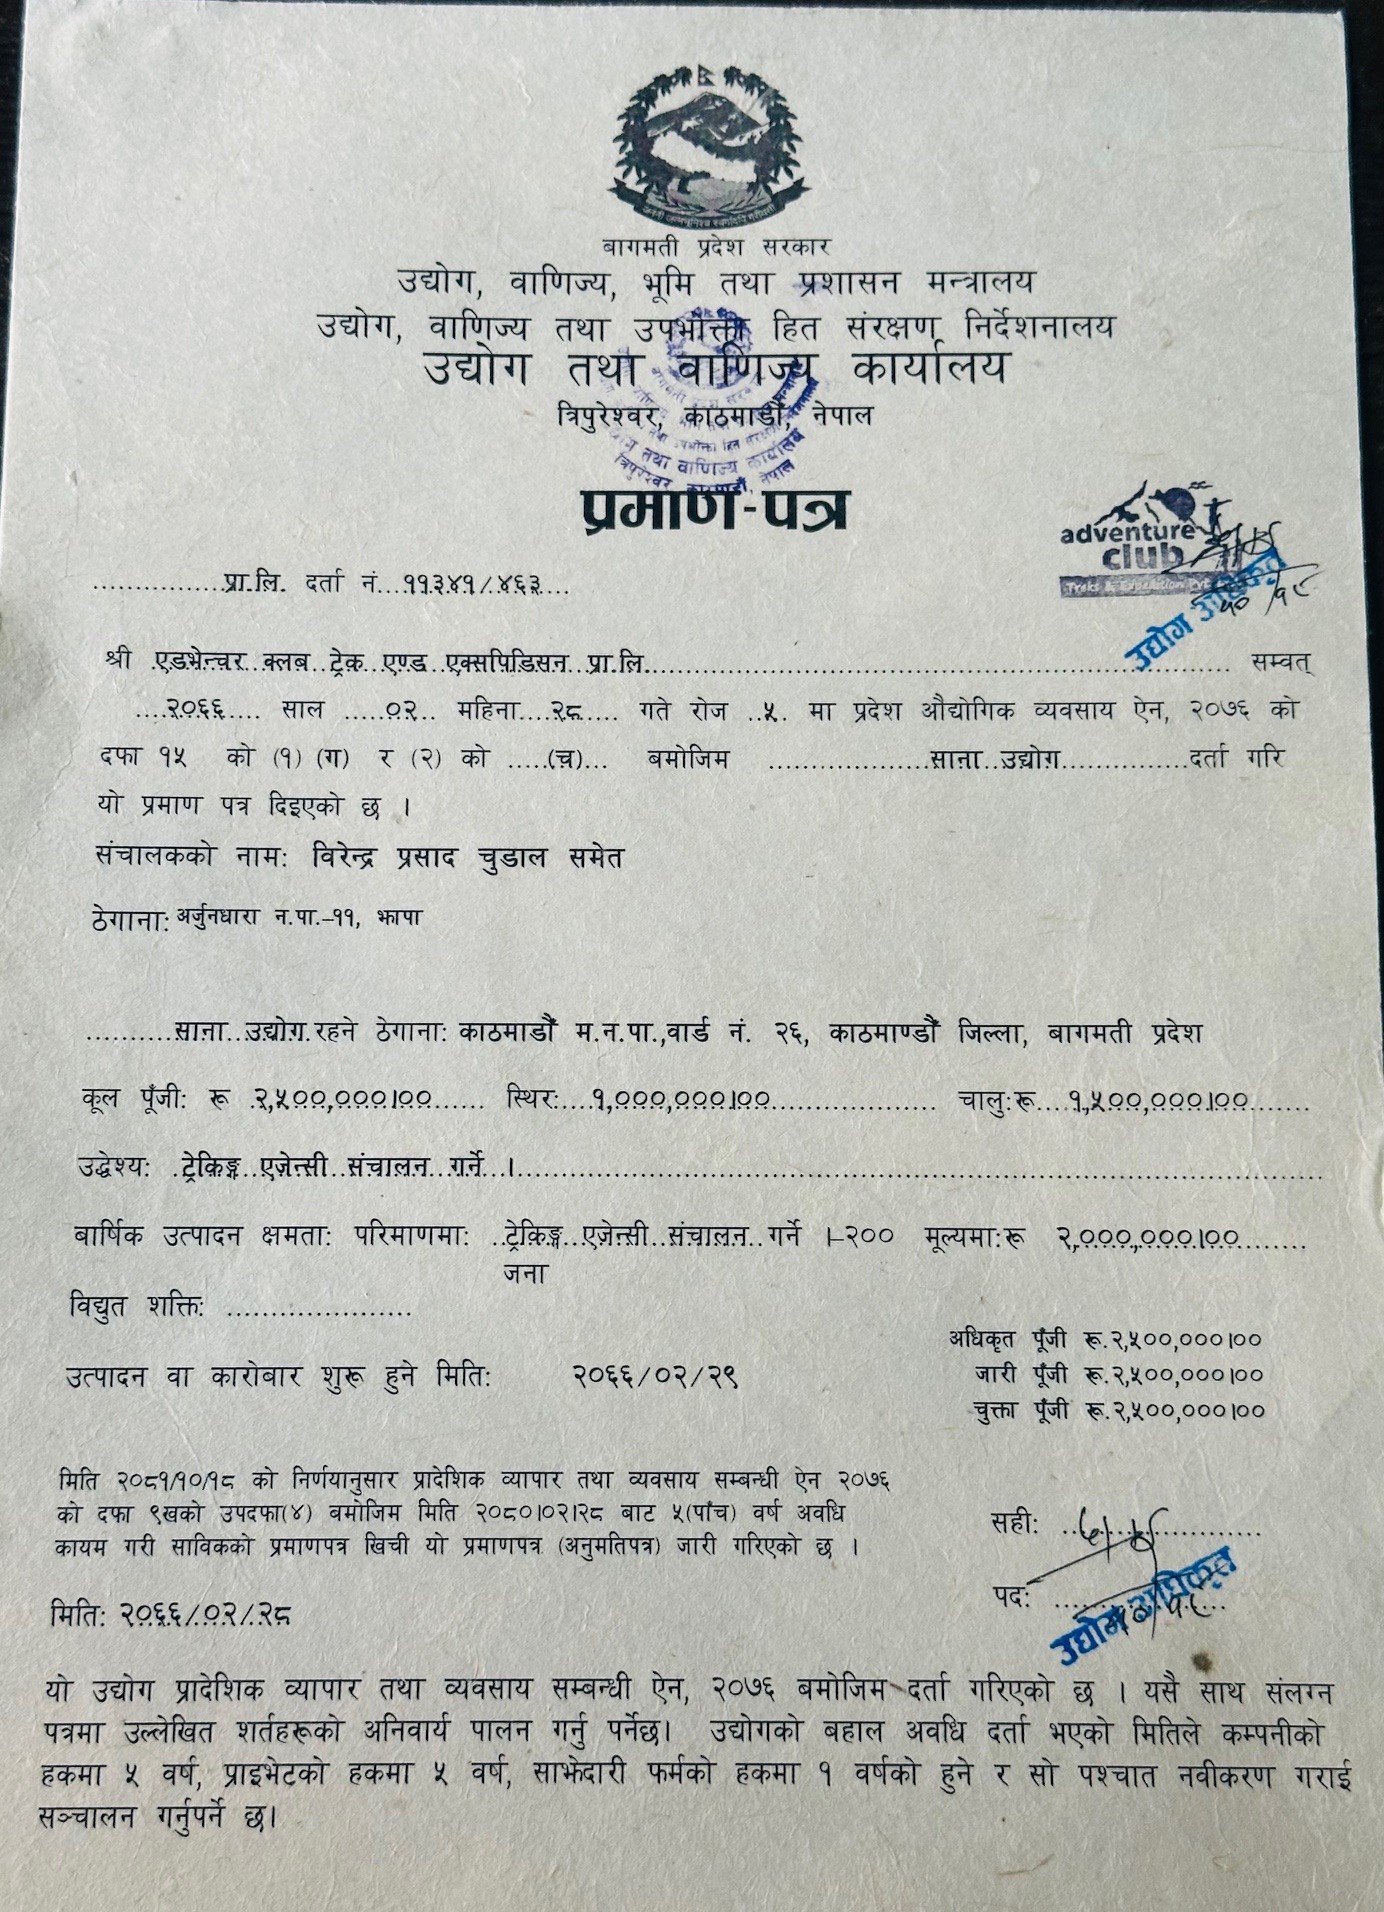 बागमती प्रदेश सरकार
उद्योग, वाणिज्य, भूमि तथा प्रशासन मन्त्रालय
उद्योग, वाणिज्य तथा उपभोक्ता हित संरक्षण निर्देशनालय
उद्योग तथा वाणिज्य कार्यालय
त्रिपुरेश्वर, काठमाडौं, नेपाल
तथा वाणिज्य कार्यालय
त्रिपुरेश्वर, काठमाडौं, नेपाल
प्रमाण-पत्र
adventure
club
Treks & Expedition Pvt
उद्योग अधिकृत
१०/१८
...............प्रा.लि. दर्ता नं...११३४१/४६३....
श्री एडभेन्चर क्लब ट्रेक एण्ड एक्सपिडिसन प्रा.लि............ सम्वत्
....२०६६.... साल .....०२.. महिना....२८..... गते रोज ..५. मा प्रदेश औद्योगिक व्यवसाय ऐन, २०७६ को
दफा १५ को (१) (ग) र (२) को .....(च)... बमोजिम ..................साना उद्योग..............दर्ता गरि
यो प्रमाण पत्र दिइएको छ ।
संचालकको नाम: विरेन्द्र प्रसाद चुडाल समेत
ठेगाना: अर्जुनधारा न.पा.-११, झापा
..........साना उद्योग रहने ठेगाना: काठमाडौं म.न.पा.,वार्ड नं. २६, काठमाण्डौं जिल्ला, बागमती प्रदेश
कूल पूँजी: रू २,५००,०००।०० ...... स्थिर:....१,०००,०००।००.................. चालु:रू....१,५००,०००।००.......
उद्धेश्य: ट्रेकिङ्ग एजेन्सी संचालन गर्ने ।............
बार्षिक उत्पादन क्षमता: परिमाणमा: ..ट्रेकिङ्ग एजेन्सी संचालन गर्ने ।-२०० मूल्यमा:रू २,०००,०००।००........
जना
विद्युत शक्ति: .....................
अधिकृत पूँजी रू.२,५००,०००।००
उत्पादन वा कारोबार शुरू हुने मिति: २०६६/०२/२९
जारी पूँजी रू.२,५००,०००।००
चुक्ता पूँजी रू.२,५००,०००।००
मिति २०८१/१०/१८ को निर्णयानुसार प्रादेशिक व्यापार तथा व्यवसाय सम्बन्धी ऐन २०७६
को दफा ९खको उपदफा(४) बमोजिम मिति २०८०।०२।२८ बाट ५(पाँच) वर्ष अवधि
कायम गरी साविकको प्रमाणपत्र खिची यो प्रमाणपत्र (अनुमतिपत्र) जारी गरिएको छ ।
सही: ......................
पद: ....................
उद्योग अधिकृत
१०/१८
मिति: २०६६/०२/२८
यो उद्योग प्रादेशिक व्यापार तथा व्यवसाय सम्बन्धी ऐन, २०७६ बमोजिम दर्ता गरिएको छ । यसै साथ संलग्न
पत्रमा उल्लेखित शर्तहरूको अनिवार्य पालन गर्नु पर्नेछ। उद्योगको बहाल अवधि दर्ता भएको मितिले कम्पनीको
हकमा ५ वर्ष, प्राइभेटको हकमा ५ वर्ष, साझेदारी फर्मको हकमा १ वर्षको हुने र सो पश्चात नवीकरण गराई
सञ्चालन गर्नुपर्ने छ।